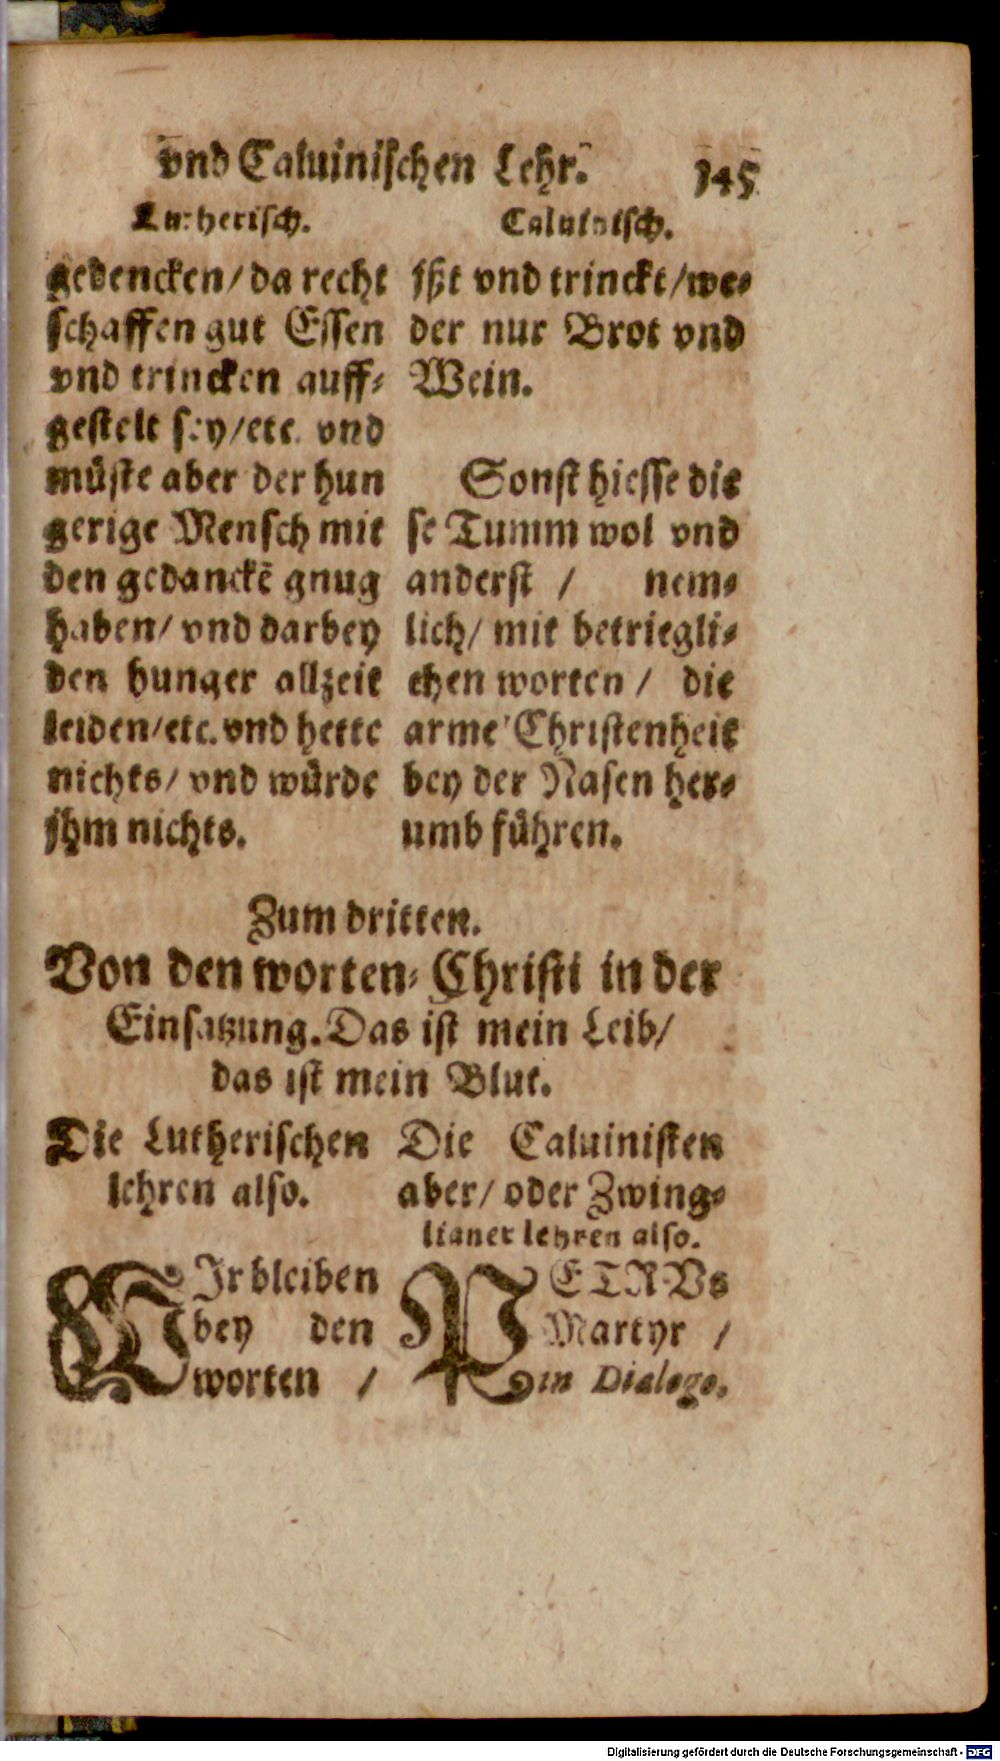 vnd Caluinischen Lehr. 145
Lutherisch.
gedencken/ da recht
schaffen gut Essen
vnd trincken auff-
gestelt sey/etc. vnd
müste aber der hun
gerige Mensch mit
den gedanckẽ gnug
haben/ vnd darbey
den hunger allzeit
leiden/etc. vnd hette
nichts/ vnd würde
jhm nichts.
Caluinisch.
jßt vnd trinckt/we-
der nur Brot vnd
Wein.
Sonst hiesse die
se Tumm wol vnd
anderst / nem-
lich/ mit betriegli-
chen worten / die
arme Christenheit
bey der Nasen her-
umb führen.
Zum dritten.
Von den worten Christi in der
Einsatzung. Das ist mein Leib/
das ist mein Blut.
Die Lutherischen
lehren also.
WIr bleiben
bey den
worten /
Die Caluinisten
aber/ oder Zwing-
lianer lehren also.
PETRVs
Martyr /
in Dialogo.
Digitalisierung gefördert durch die Deutsche Forschungsgemeinschaft - DFG